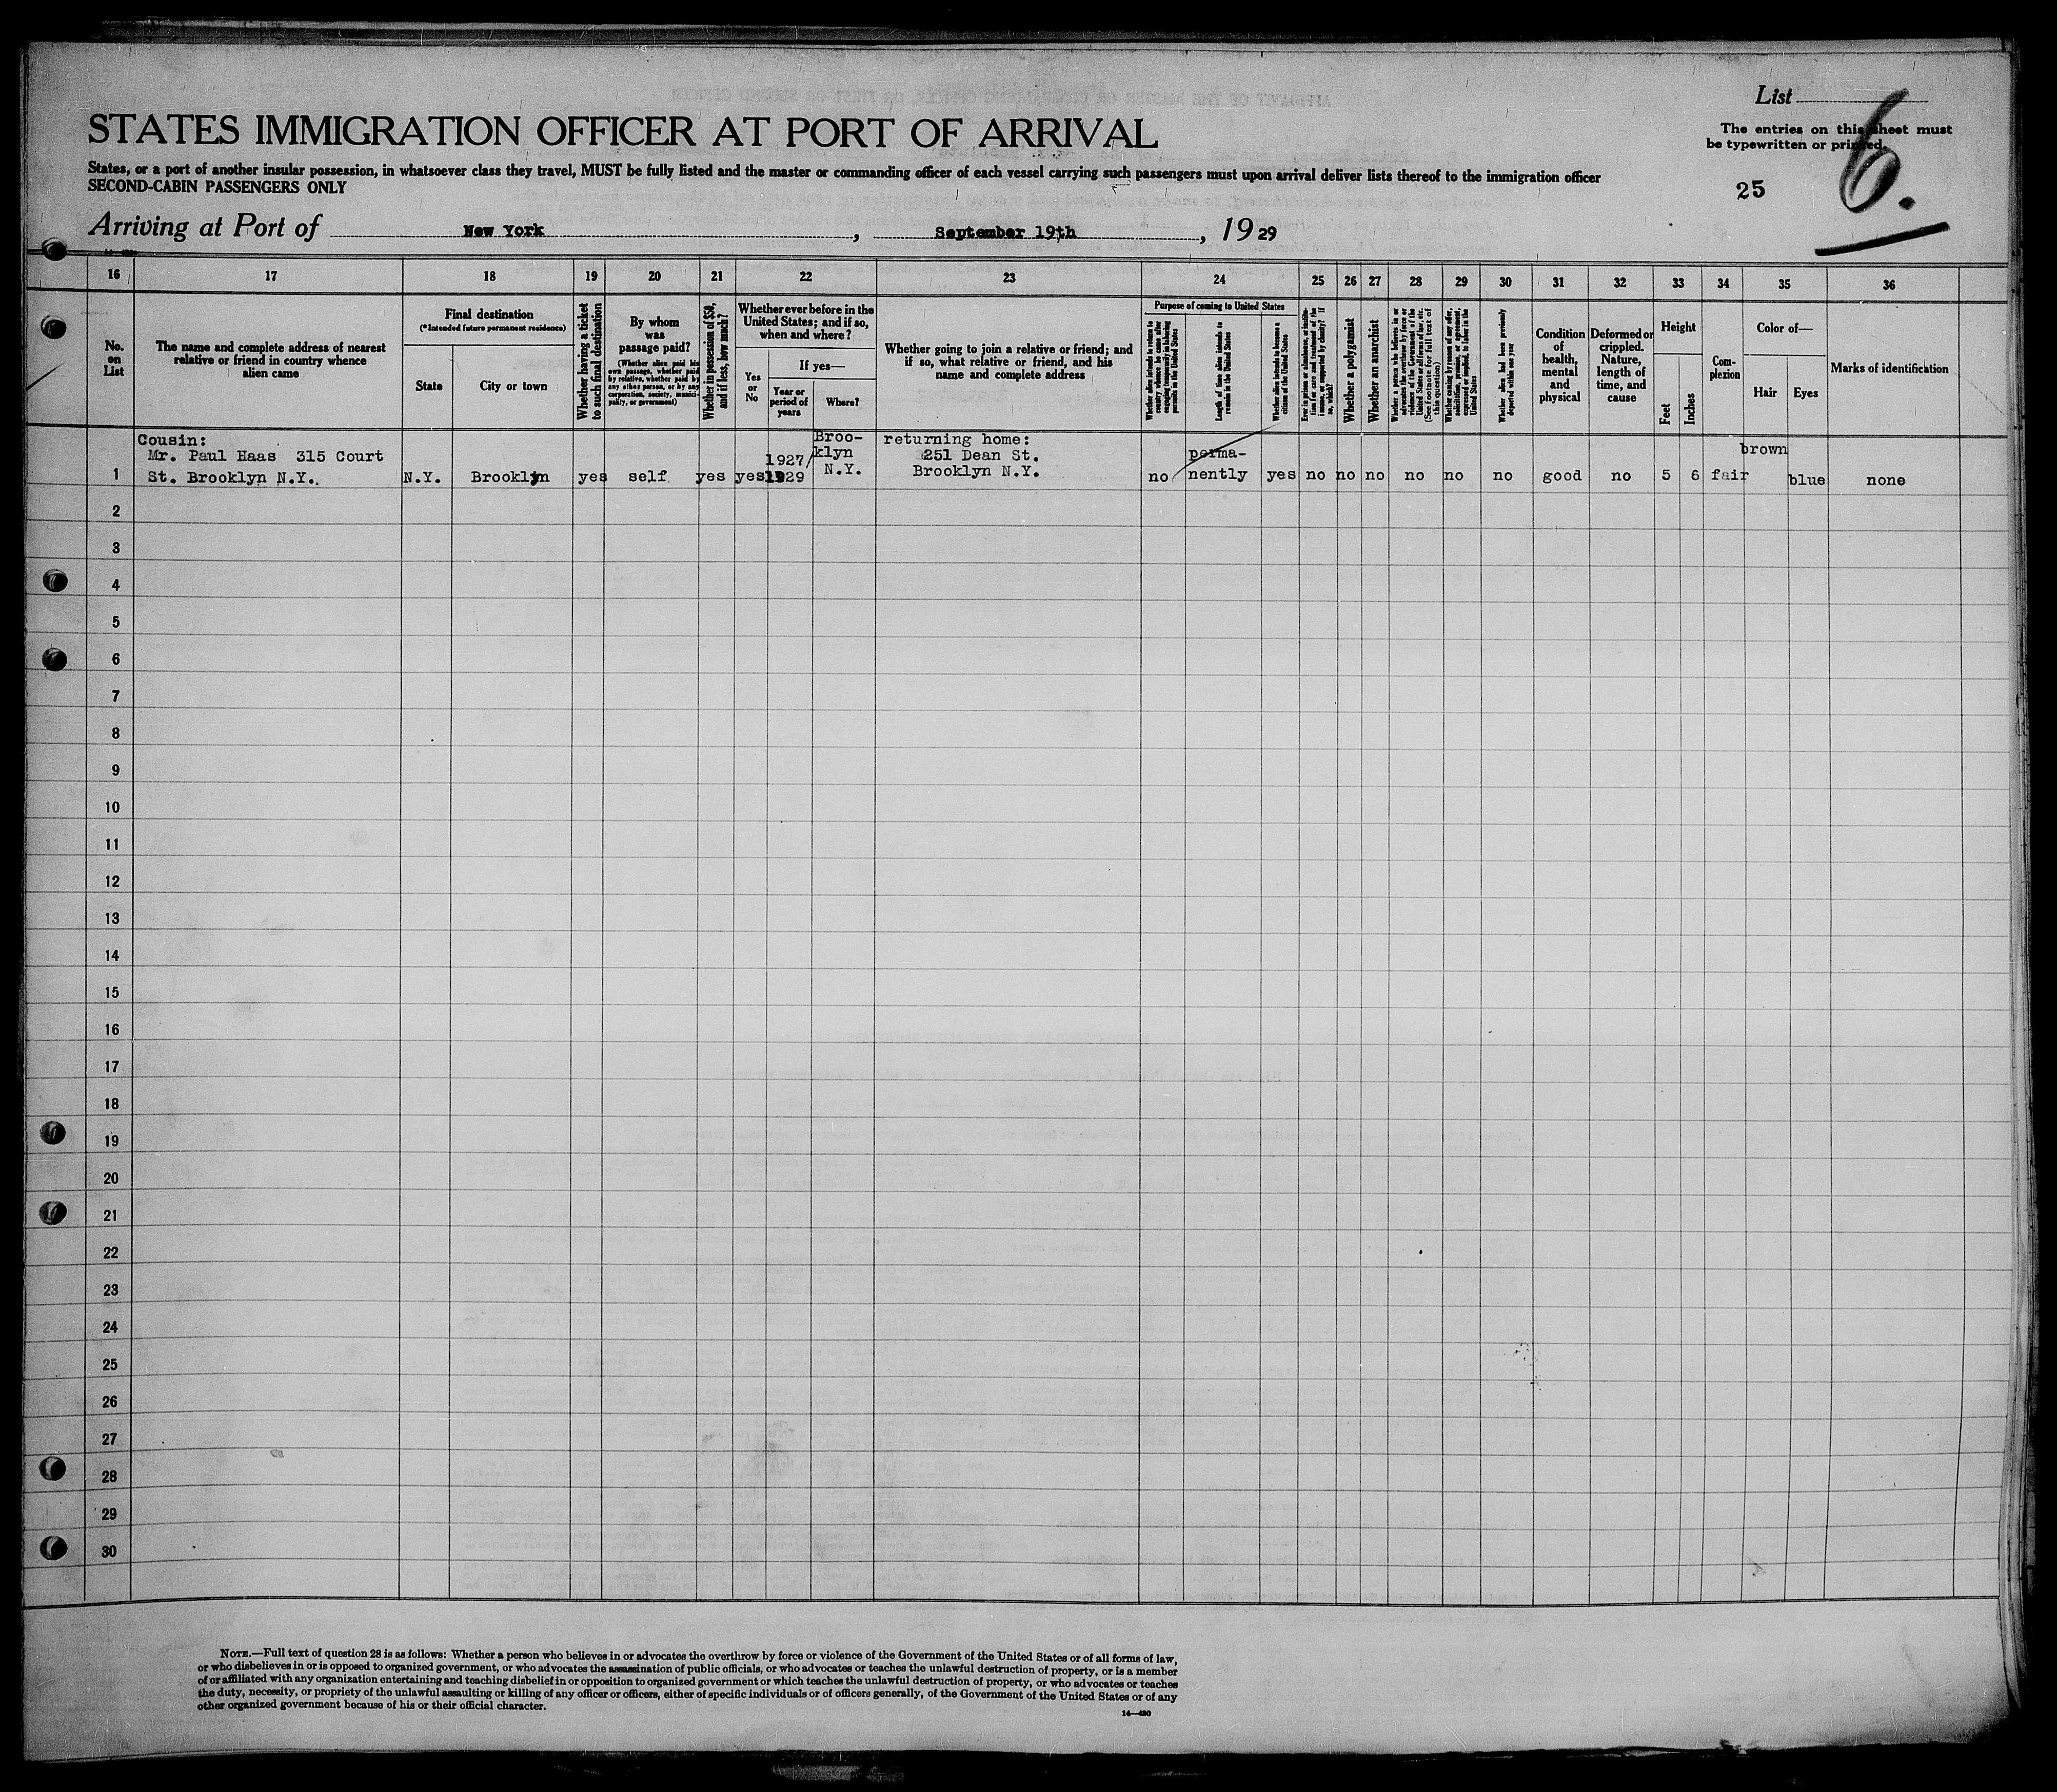 List
STATES IMMIGRATION OFFICER AT PORT OF ARRIVAL
The entries on this sheet must
be typewritten or printed.
6.
States, or a port of another insular possession, in whatsoever class they travel, MUST be fully listed and the master or commanding officer of each vessel carrying such passengers must upon arrival deliver lists thereof to the immigration officer
SECOND-CABIN PASSENGERS ONLY
25
Arriving at Port of New York, September 19th, 1929
16 17 18 19 20 21 22 23 24 25 26 27 28 29 30 31 32 33 34 35 36
No.
on
List
The name and complete address of nearest
relative or friend in country whence
alien came
Final destination
(*Intended future permanent residence)
State
City or town
Whether having a ticket
to such final destination
By whom
was
passage paid?
(Whether alien paid his
own passage, whether paid
by relative, whether paid by
any other person, or by any
corporation, society, munici-
pality, or government)
Whether in possession of $50,
and if less, how much?
Whether ever before in the
United States; and if so,
when and where?
Yes
or
No
If yes—
Year or
period of
years
Where?
Whether going to join a relative or friend; and
if so, what relative or friend, and his
name and complete address
Purpose of coming to United States
Whether alien intends to return to
country whence he came after
engaging temporarily in laboring
pursuits in the United States
Length of time alien intends to
remain in the United States
Whether alien intends to become a
citizen of the United States
Ever in prison or almshouse, or institu-
tion for care and treatment of the
insane, or supported by charity? If
so, which?
Whether a polygamist
Whether an anarchist
Whether a person who believes in or
advocates the overthrow by force or
violence of the Government of the
United States or all forms of law, etc.
(See footnote for full text of
this question)
Whether coming by reason of any offer,
solicitation, promise, or agreement,
expressed or implied, to labor in the
United States
Whether alien had been previously
deported within one year
Condition
of
health,
mental
and
physical
Deformed or
crippled.
Nature,
length of
time, and
cause
Height
Feet
Inches
Com-
plexion
Color of—
Hair
Eyes
Marks of identification
Cousin: Broo- returning home:
Mr. Paul Haas 315 Court 1927/ klyn 251 Dean St. perma- brown
1 St. Brooklyn N.Y. N.Y. Brooklyn yes self yes yes 1929 N.Y. Brooklyn N.Y. no nently yes no no no no no no good no 5 6 fair blue none
2
3
4
5
6
7
8
9
10
11
12
13
14
15
16
17
18
19
20
21
22
23
24
25
26
27
28
29
30
NOTE.—Full text of question 28 is as follows: Whether a person who believes in or advocates the overthrow by force or violence of the Government of the United States or of all forms of law,
or who disbelieves in or is opposed to organized government, or who advocates the assassination of public officials, or who advocates or teaches the unlawful destruction of property, or is a member
of or affiliated with any organization entertaining and teaching disbelief in or opposition to organized government or which teaches the unlawful destruction of property, or who advocates or teaches
the duty, necessity, or propriety of the unlawful assaulting or killing of any officer or officers, either of specific individuals or of officers generally, of the Government of the United States or of any
other organized government because of his or their official character.
14—430